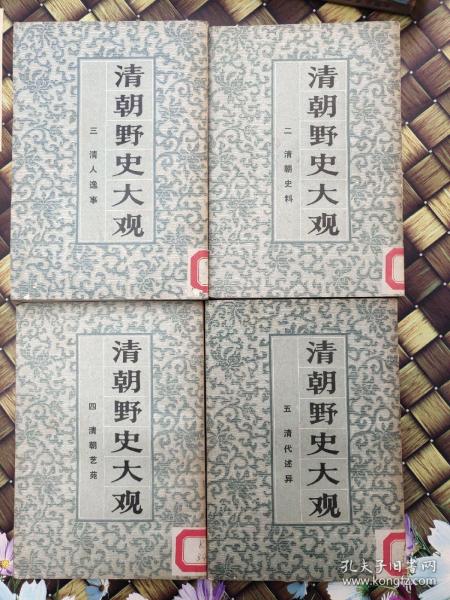 清朝野史大观
三 清人逸事
清朝野史大观
二 清朝史料
清朝野史大观
四 清朝艺苑
清朝野史大观
五 清代述异
孔夫子旧书网
www.kongfz.com